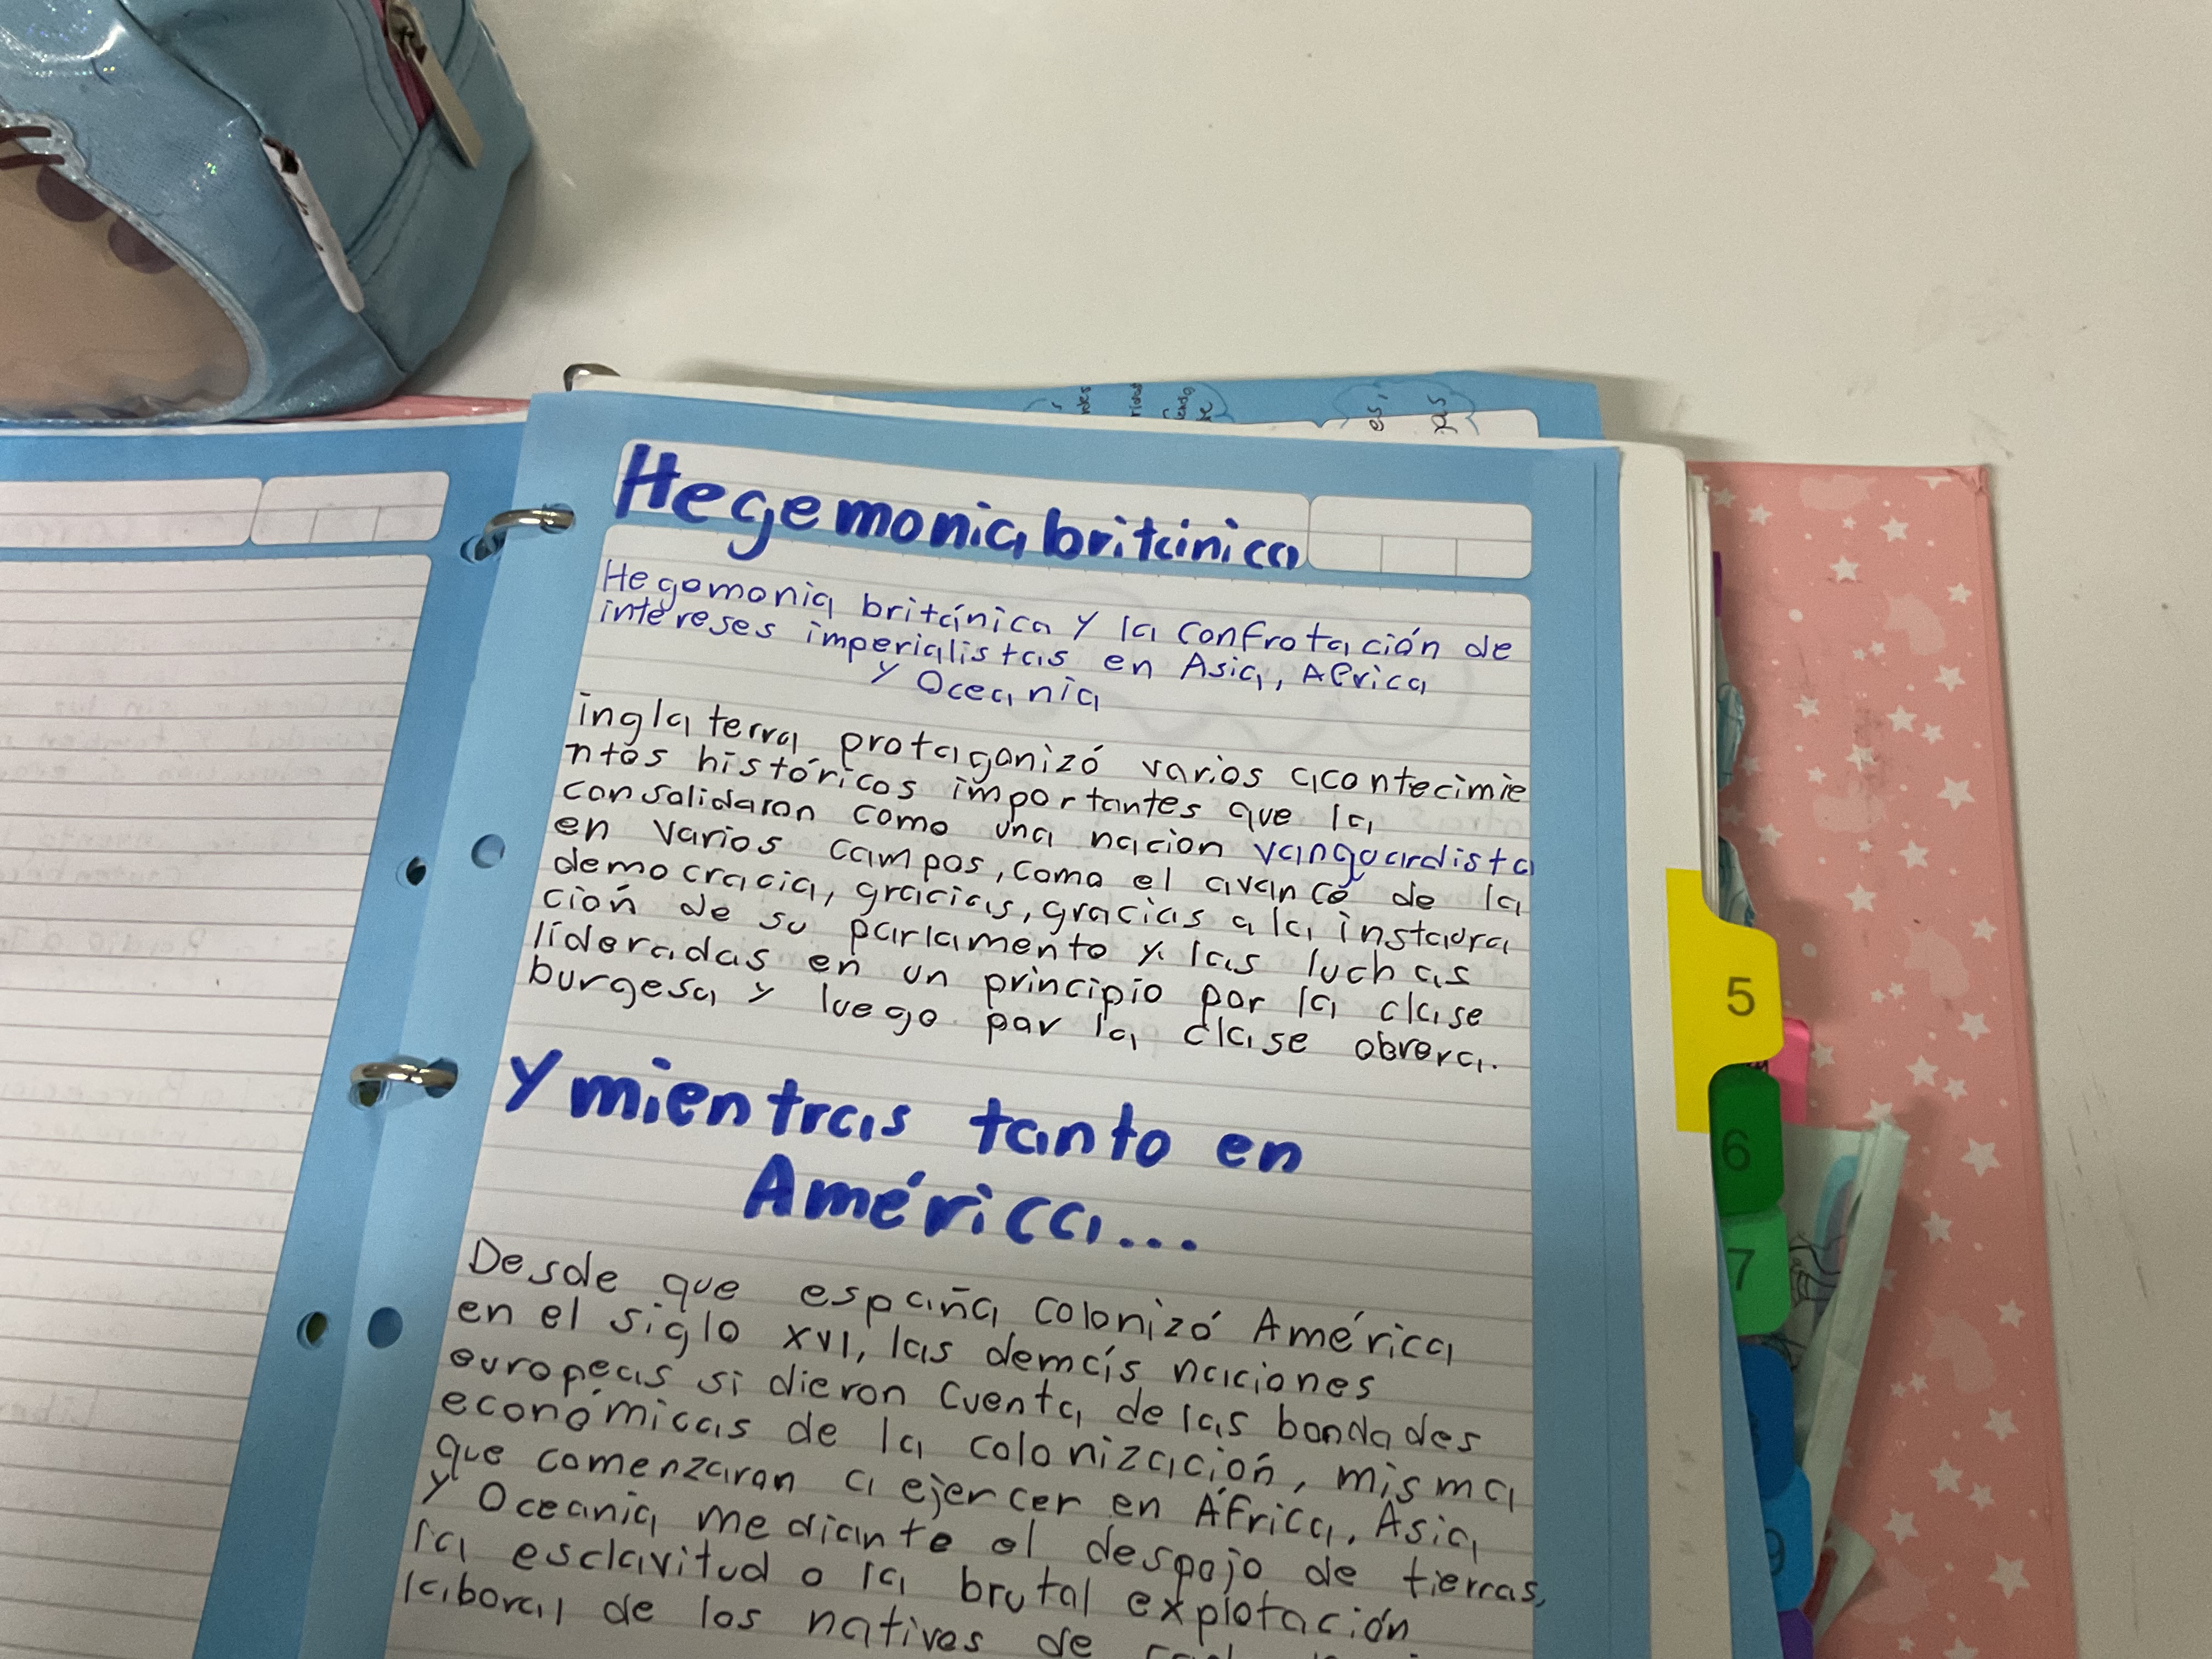 Hegemonia británica
Hegomonia británica y la Confrotación de
intereses imperialistas en Asia, Africa
y Oceania
inglaterra protagonizó varios acontecimie
ntos históricos importantes que la
consolidaron como una nacion vanguardista
en varios campos, como el avance de la
democracia, gracias, gracias a la instaura
ción de su parlamento y las luchas
lideradas en un principio por la clase
burgesa y luego por la clase obrera.
Y mientras tanto en
América...
Desde que españa colonizó América
en el siglo XVI, las demás naciones
europeas si dieron cuenta de las bondades
económicas de la colonización, misma
que comenzaron a ejercer en África, Asia,
y Oceania mediante el despojo de tierras,
la esclavitud o la brutal explotación
laboral de los nativos de
5
6
7
9